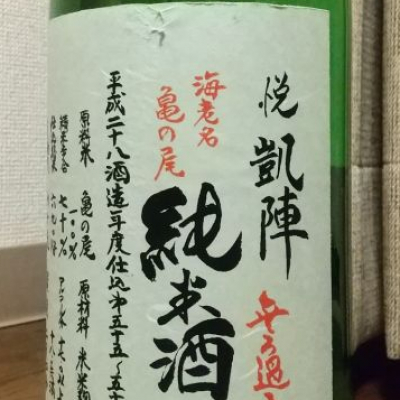 悦凱陣
無ろ過
海老名
亀の尾
純米酒
平成二十八酒造年度仕込第五十五
原料米 亀の尾 一〇〇%
原材料 米 米麹
精米歩合 七十%